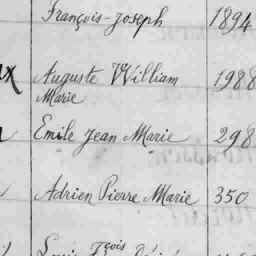 François-Joseph 1894
Auguste William 1988
Marie
Emile Jean Marie 298
Adrien Pierre Marie 350
Louis Fçois